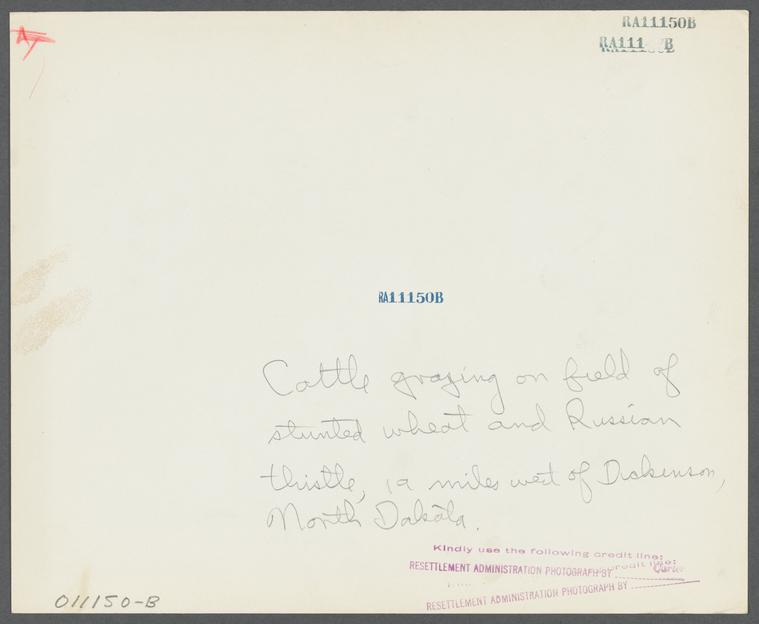 RA11150B
RA111 B
RA11150B
Cattle grazing on field of
stunted wheat and Russian
thistle, 19 miles west of Dickinson,
North Dakota.
Kindly use the following credit line:
credit line:
RESETTLEMENT ADMINISTRATION PHOTOGRAPH BY
RESETTLEMENT ADMINISTRATION PHOTOGRAPH BY
011150-B